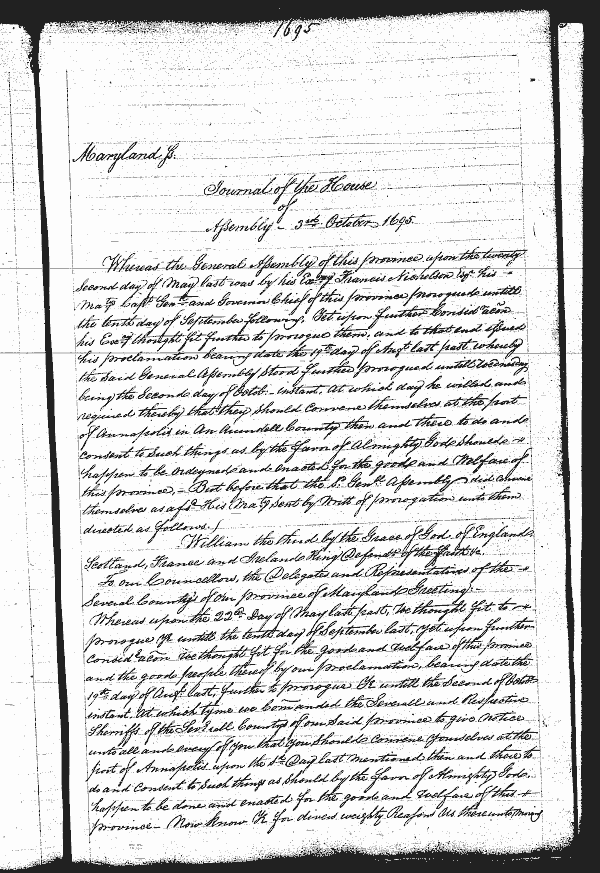 1695
Maryland ss.
Journal of the House
of
Assembly - 3rd October 1695
Whereas the General Assembly of this province upon the twenty
second day of May last was by his Exncy Francis Nicholson Esqr his
Maty Capt Genll and Governor Chief of this province prorogued untill
the tenth day of September following. Yet upon further Considacon
his Excy thought fit further to prorogue them, and to that end issued
his proclamation bearing date the 19th day of Augt last past whereby
the said General Assembly stood further prorogued untill Wednesday
being the Second day of Octob. instant, at which day he willed and
required thereby that they should Convene themselves at the port
of Annapolis in An Arundell County then and there to do and
consent to such things as by the favor of Almighty God should
happen to be Ordeyned and enacted for the good and Welfare of
this province. - But before that the sd. Genll Assembly did convene
themselves as afsd His Maty Sent by Writt of prorogation unto them
directed as follows. /
William the third by the Grace of God of England
Scotland, France and Ireland King Defendr of the faith &c.
To our Councellors, the Delegates and Representatives of the
Several Countys of our province of Maryland Greeting. -
Whereas upon the 22d Day of May last past, We thought fit to
prorogue Ye untill the tenth day of September last, yet upon further
Considacon We thought fit for the good and Welfare of this province
and the good people thereof by our proclamation, bearing date the
19th day of Augt last, further to prorogue Ye untill the Second of Octobr
instant. At which tyme we Comanded the Severall and Respective
Sherriffs of the Severall Countys of our said province to give Notice
unto all and every of you that you should convene yourselves at the
port of Annapolis upon the sd Day last mentioned then and there to
do and Consent to Such things as should by the favor of Almighty God,
happen to be done and enacted for the good and Welfare of this
province - Now know Ye for divers weighty Reasons Us thereunto moving